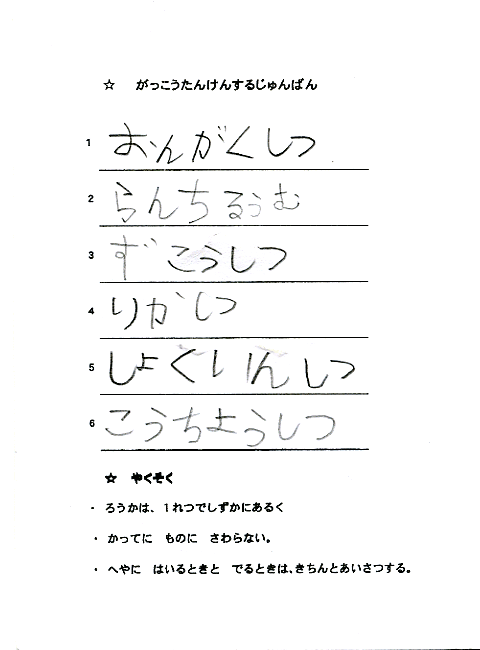 ☆ がっこうたんけんするじゅんばん
1 おんがくしつ
2 らんちるぅむ
3 ずこうしつ
4 りかしつ
5 しょくいんしつ
6 こうちようしつ
☆ やくそく
・ ろうかは、１れつでしずかにあるく
・ かってに ものに さわらない。
・ へやに はいるときと でるときは、きちんとあいさつする。